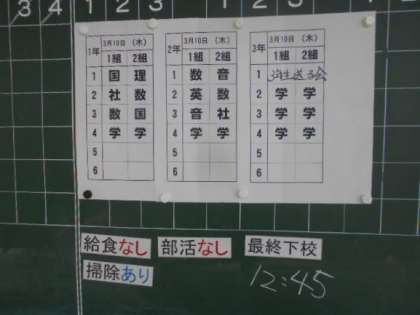 3 4 1 2 3
1年 3月10日 (木)
1組 2組
1 国 理
2 社 数
3 数 国
4 学 学
5
6
2年 3月10日 (木)
1組 2組
1 数 音
2 英 数
3 音 社
4 学 学
5
6
3年 3月10日 (木)
1組 2組
1 生送る会
2 学 学
3 学 学
4 学 学
5
6
給食なし 部活なし 最終下校
掃除あり 12:45